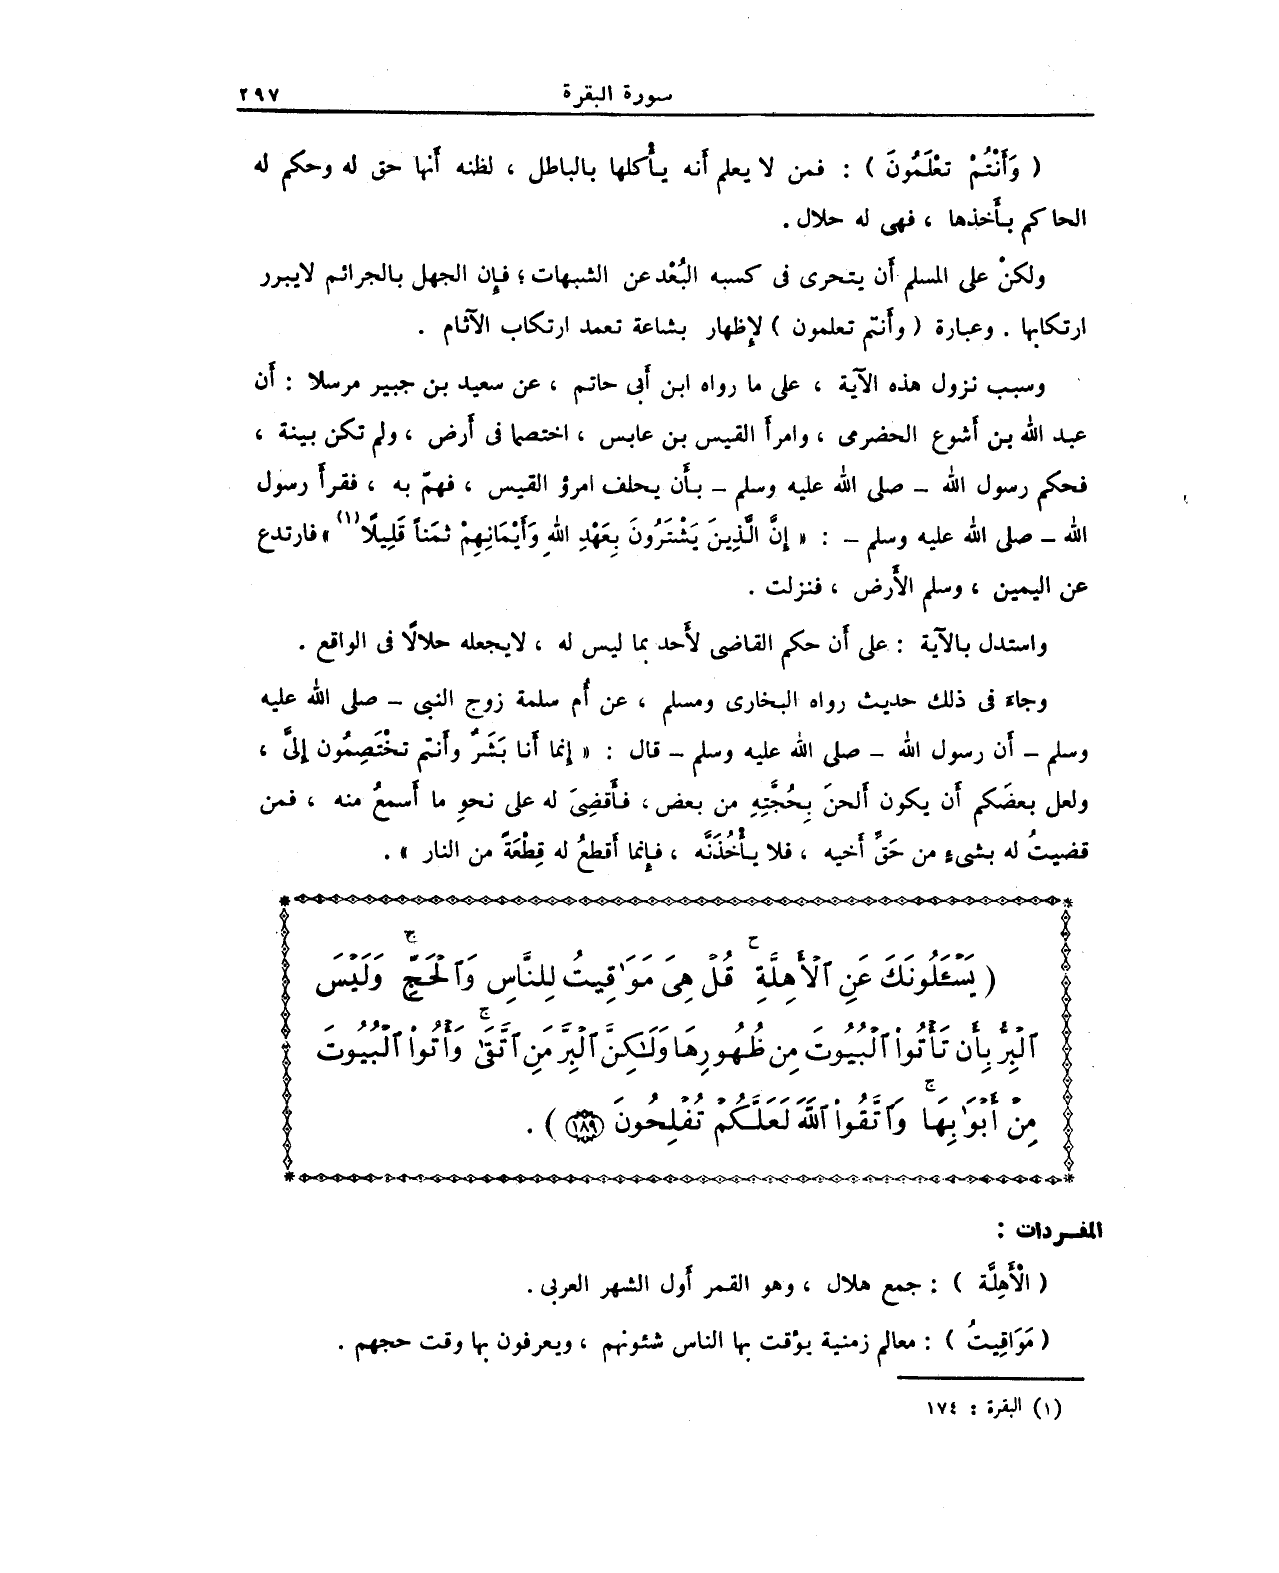 سورة البقرة ٢٩٧
( وَأَنْتُمْ تَعْلَمُونَ ) : فمن لا يعلم أنه يأْكلها بالباطل ، لظنه أنها حق له وحكم له
الحاكم بأَخذها ، فهى له حلال .
ولكنْ على المسلم أن يتحرى فى كسبه البُعْد عن الشبهات ؛ فإن الجهل بالجرائم لايبرر
ارتكابها . وعبارة ( وأَنتم تعلمون ) لإِظهار بشاعة تعمد ارتكاب الآثام .
وسبب نزول هذه الآية ، على ما رواه ابن أَبى حاتم ، عن سعيد بن جبير مرسلا : أَن
عبد الله بن أشوع الحضرمى ، وامرأَ القيس بن عابس ، اختصما فى أَرض ، ولم تكن بينة ،
فحكم رسول الله – صلى الله عليه وسلم – بأَن يحلف امرؤ القيس ، فهمّ به ، فقرأَ رسول
الله – صلى الله عليه وسلم – : « إِنَّ الَّذِينَ يَشْتَرُونَ بِعَهْدِ اللهِ وَأَيْمَانِهِمْ ثَمَناً قَلِيلًا (١) » فارتدع
عن اليمين ، وسلم الأَرض ، فنزلت .
واستدل بالآية : على أَن حكم القاضى لأَحد بما ليس له ، لايجعله حلالًا فى الواقع .
وجاءَ فى ذلك حديث رواه البخارى ومسلم ، عن أُم سلمة زوج النبى – صلى الله عليه
وسلم – أَن رسول الله – صلى الله عليه وسلم – قال : « إِنما أَنا بَشَرٌ وأَنتم تخْتَصِمُون إِلىَّ ،
ولعل بعضَكم أَن يكون أَلحنَ بِحُجَّتِهِ من بعض ، فأَقضِىَ له على نحوِ ما أَسمعُ منه ، فمن
قضيتُ له بشىءٍ من حَقِّ أَخيه ، فلا يأْخُذَنَّه ، فإِنما أَقطعُ له قِطْعَةً من النار » .
( يَسْـَٔلُونَكَ عَنِ ٱلْأَهِلَّةِ ۖ قُلْ هِىَ مَوَٰقِيتُ لِلنَّاسِ وَٱلْحَجِّ ۗ وَلَيْسَ
ٱلْبِرُّ بِأَن تَأْتُوا۟ ٱلْبُيُوتَ مِن ظُهُورِهَا وَلَٰكِنَّ ٱلْبِرَّ مَنِ ٱتَّقَىٰ ۗ وَأْتُوا۟ ٱلْبُيُوتَ
مِنْ أَبْوَٰبِهَا ۚ وَٱتَّقُوا۟ ٱللَّهَ لَعَلَّكُمْ تُفْلِحُونَ ١٨٩ ) .
المفـردات :
( الْأَهِلَّة ) : جمع هلال ، وهو القمر أَول الشهر العربى .
( مَوَاقِيتُ ) : معالم زمنية يؤقت بها الناس شئونهم ، ويعرفون بها وقت حجهم .
(١) البقرة : ١٧٤